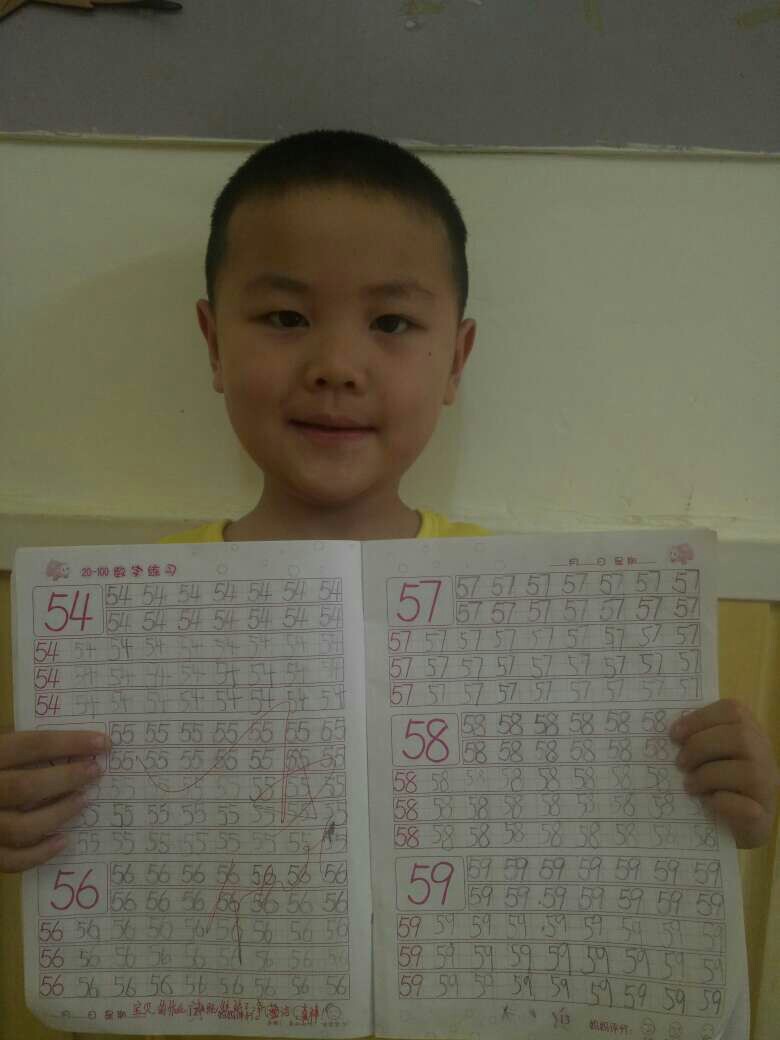 20-100 数学练习
54 54 54 54 54 54 54 54
54 54 54 54 54 54 54
54 54 54 54 54 54 54 54 54
54 54 54 54 54 54 54 54 54
54 54 54 54 54 54 54 54 54
55 55 55 55 55 55 55
55 55 55 55 55 55 55
55 55 55 55 55 55 55
55 55 55 55 55 55 55
55 55 55 55 55 55 55
56 56 56 56 56 56 56 56
56 56 56 56 56 56 56
56 56 56 56 56 56 56 56 56
56 56 56 56 56 56 56 56 56
56 56 56 56 56 56 56 56 56
月 日 星期
宝贝
月 日 星期
57 57 57 57 57 57 57 57
57 57 57 57 57 57 57
57 57 57 57 57 57 57 57 57
57 57 57 57 57 57 57 57 57
57 57 57 57 57 57 57 57 57
58 58 58 58 58 58 58
58 58 58 58 58 58
58 58 58 58 58 58 58 58 58
58 58 58 58 58 58 58 58 58
58 58 58 58 58 58 58 58 58
59 59 59 59 59 59 59 59
59 59 59 59 59 59 59
59 59 59 59 59 59 59 59 59
59 59 59 59 59 59 59 59 59
59 59 59 59 59 59 59 59 59
妈妈评价: